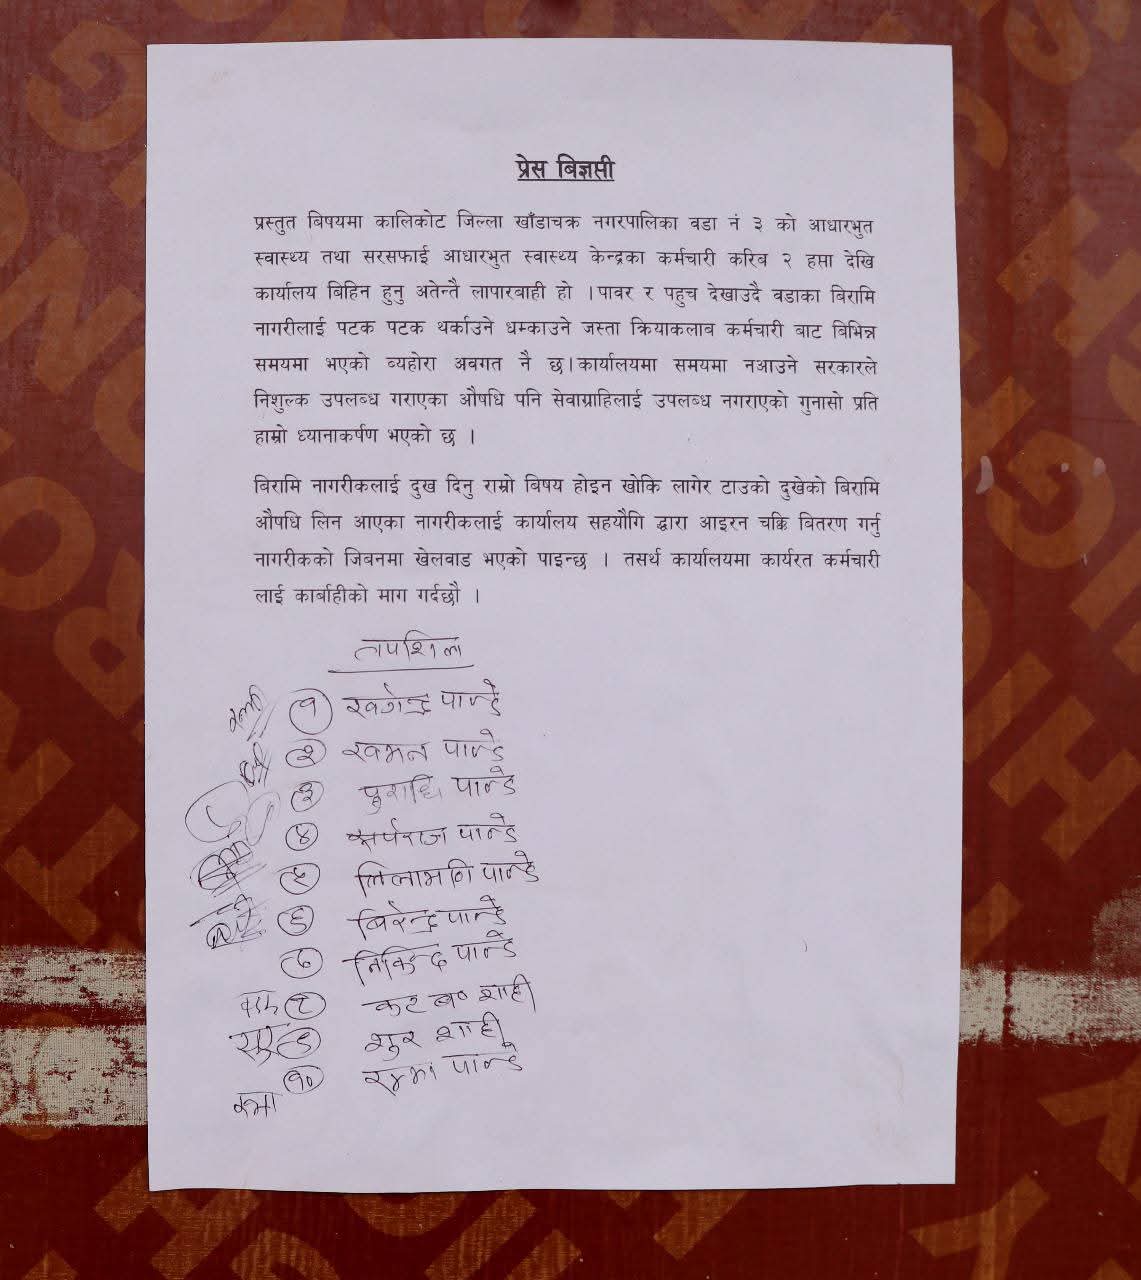 प्रेस बिज्ञप्ती
प्रस्तुत बिषयमा कालिकोट जिल्ला खाँडाचक्र नगरपालिका वडा नं ३ को आधारभुत
स्वास्थ्य तथा सरसफाई आधारभुत स्वास्थ्य केन्द्रका कर्मचारी करिब २ हप्ता देखि
कार्यालय बिहिन हुनु अतेन्तै लापारबाही हो । पावर र पहुच देखाउदै वडाका बिरामि
नागरीलाई पटक पटक थर्काउने धम्काउने जस्ता क्रियाकलाब कर्मचारी बाट बिभिन्न
समयमा भएको व्यहोरा अवगत नै छ। कार्यालयमा समयमा नआउने सरकारले
निशुल्क उपलब्ध गराएका औषधि पनि सेवाग्राहिलाई उपलब्ध नगराएको गुनासो प्रति
हाम्रो ध्यानाकर्षण भएको छ ।
बिरामि नागरीकलाई दुख दिनु राम्रो बिषय होइन खोकि लागेर टाउको दुखेको बिरामि
औषधि लिन आएका नागरीकलाई कार्यालय सहयौगि द्धारा आइरन चक्कि बितरण गर्नु
नागरीकको जिबनमा खेलवाड भएको पाइन्छ । तसर्थ कार्यालयमा कार्यरत कर्मचारी
लाई कार्बाहीको माग गर्दछौ ।
तपशिल
१ खगेन्द्र पाण्डे
२ पाण्डे
३ पाण्डे
४ पाण्डे
५ पाण्डे
६ बिरेन्द्र पाण्डे
७ पाण्डे
८ शाही
९ शाही
१० पाण्डे